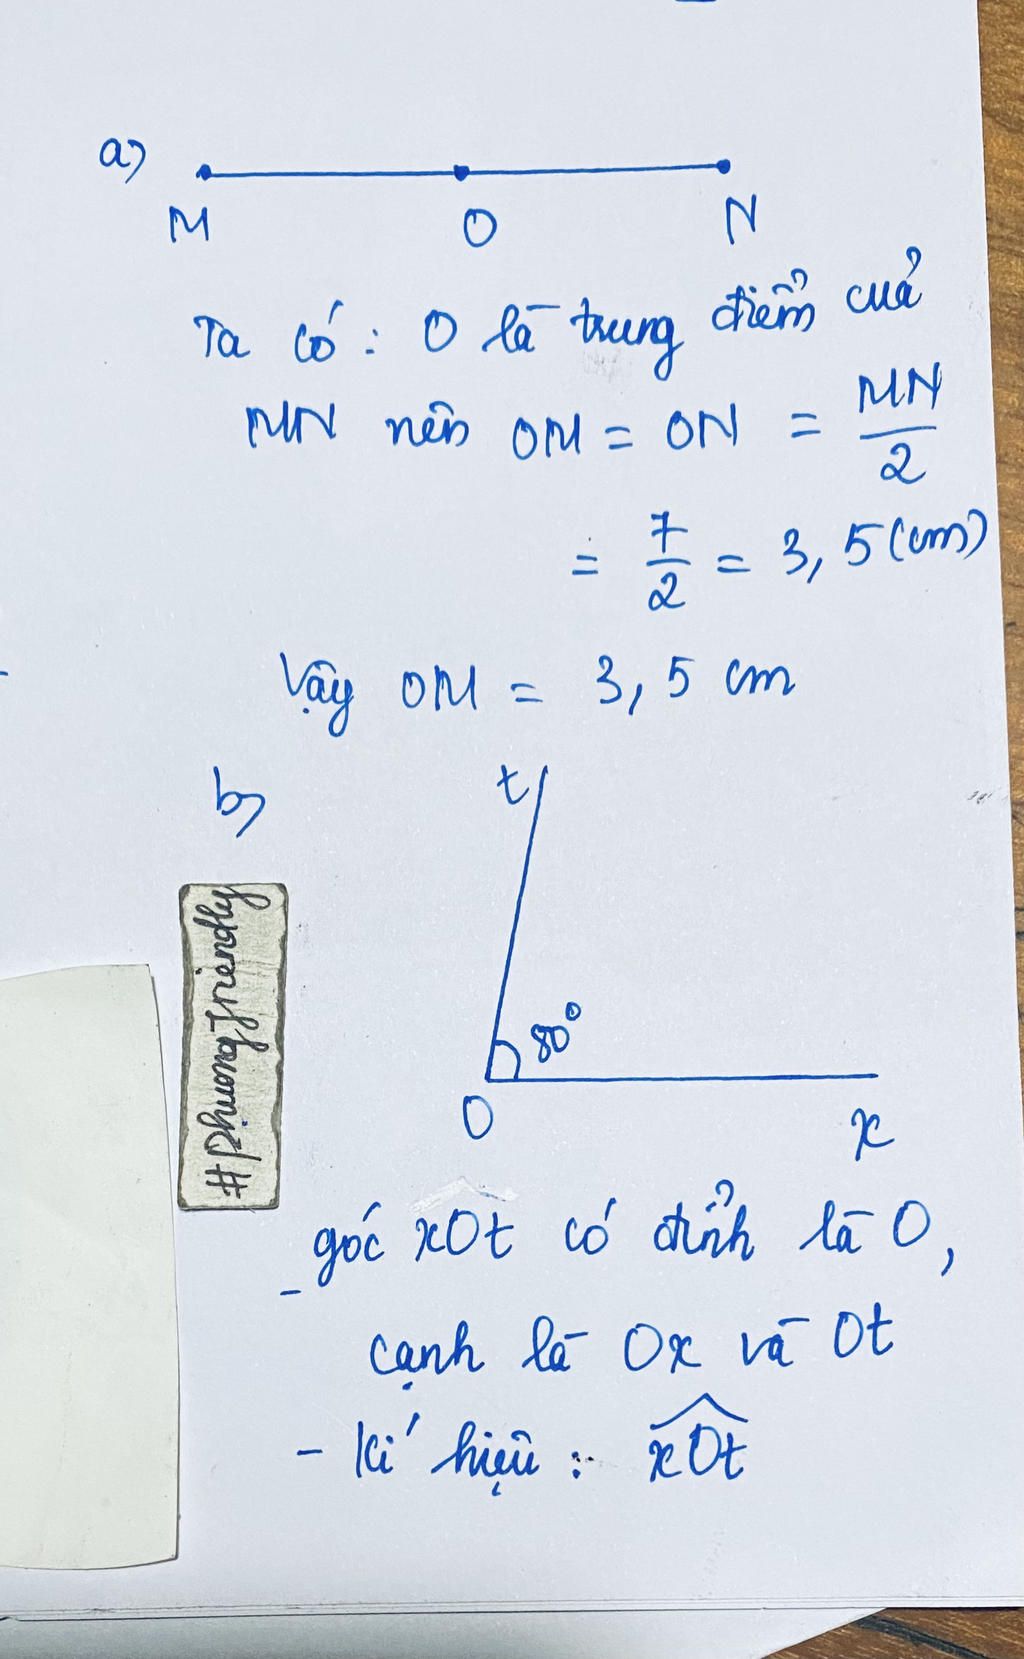 a)
M O N
Ta có: O là trung điểm của
MN nên OM = ON = MN/2
= 7/2 = 3,5 (cm)
Vậy OM = 3,5 cm
b)
t
80°
O
x
#phuongfriendly
- góc xOt có đỉnh là O,
cạnh là Ox và Ot
- kí hiệu: \widehat{xOt}